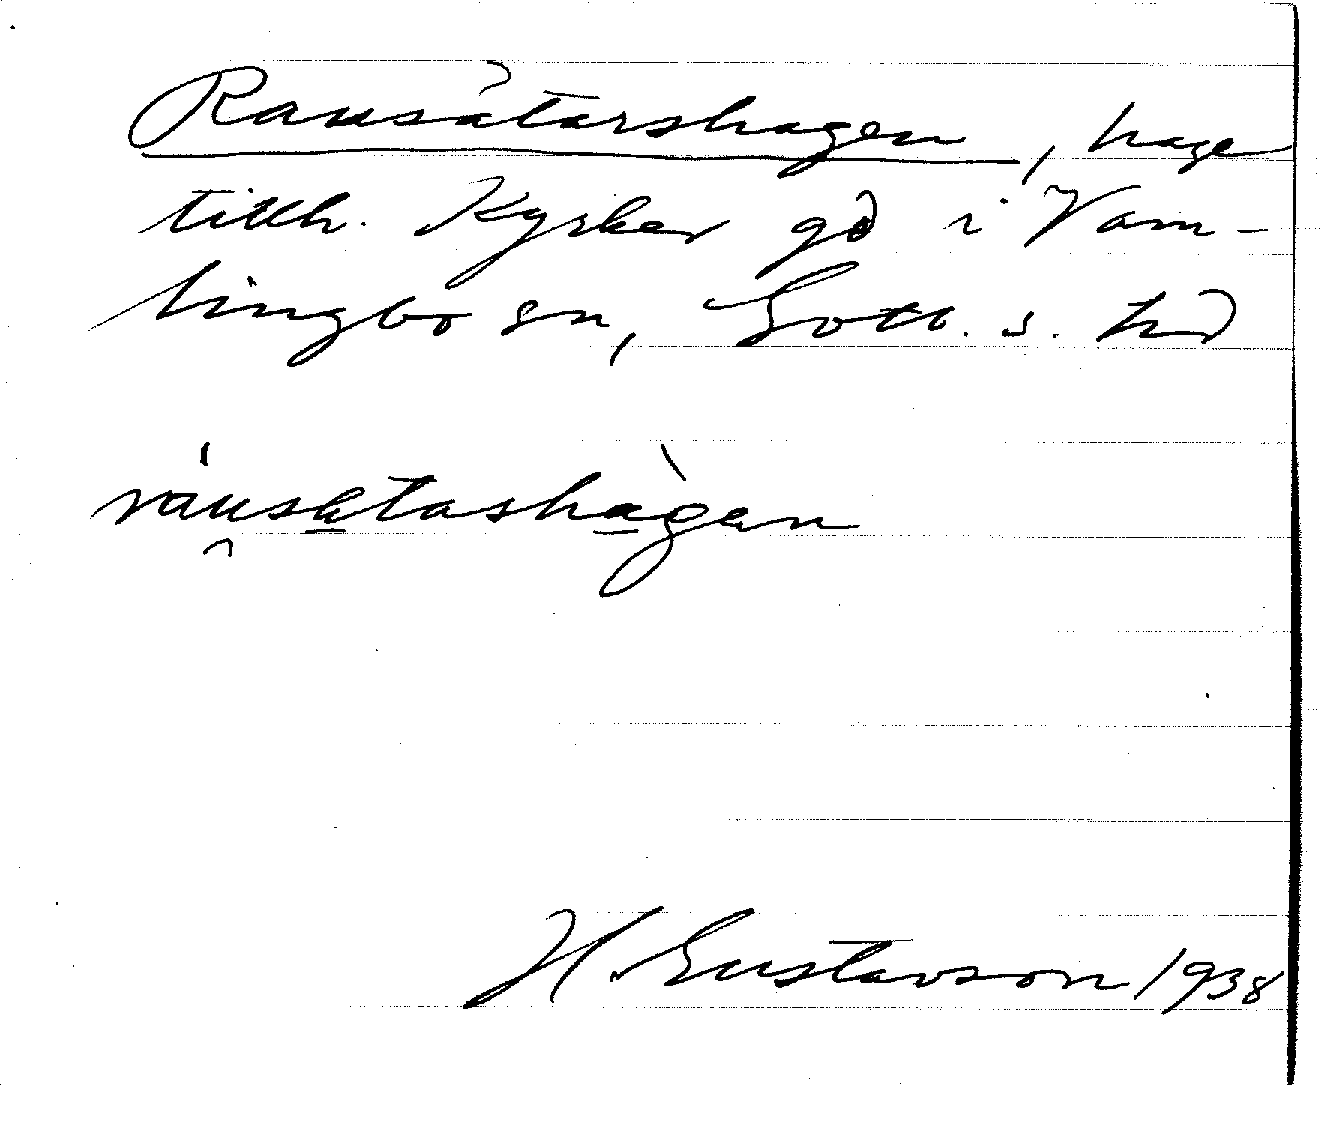 Rausåtarshagen, hage
tillh. Kyrker gd i Vam-
lingbo sn, Gotl. s. hd
rausatashàgen
H. Gustavson 1938